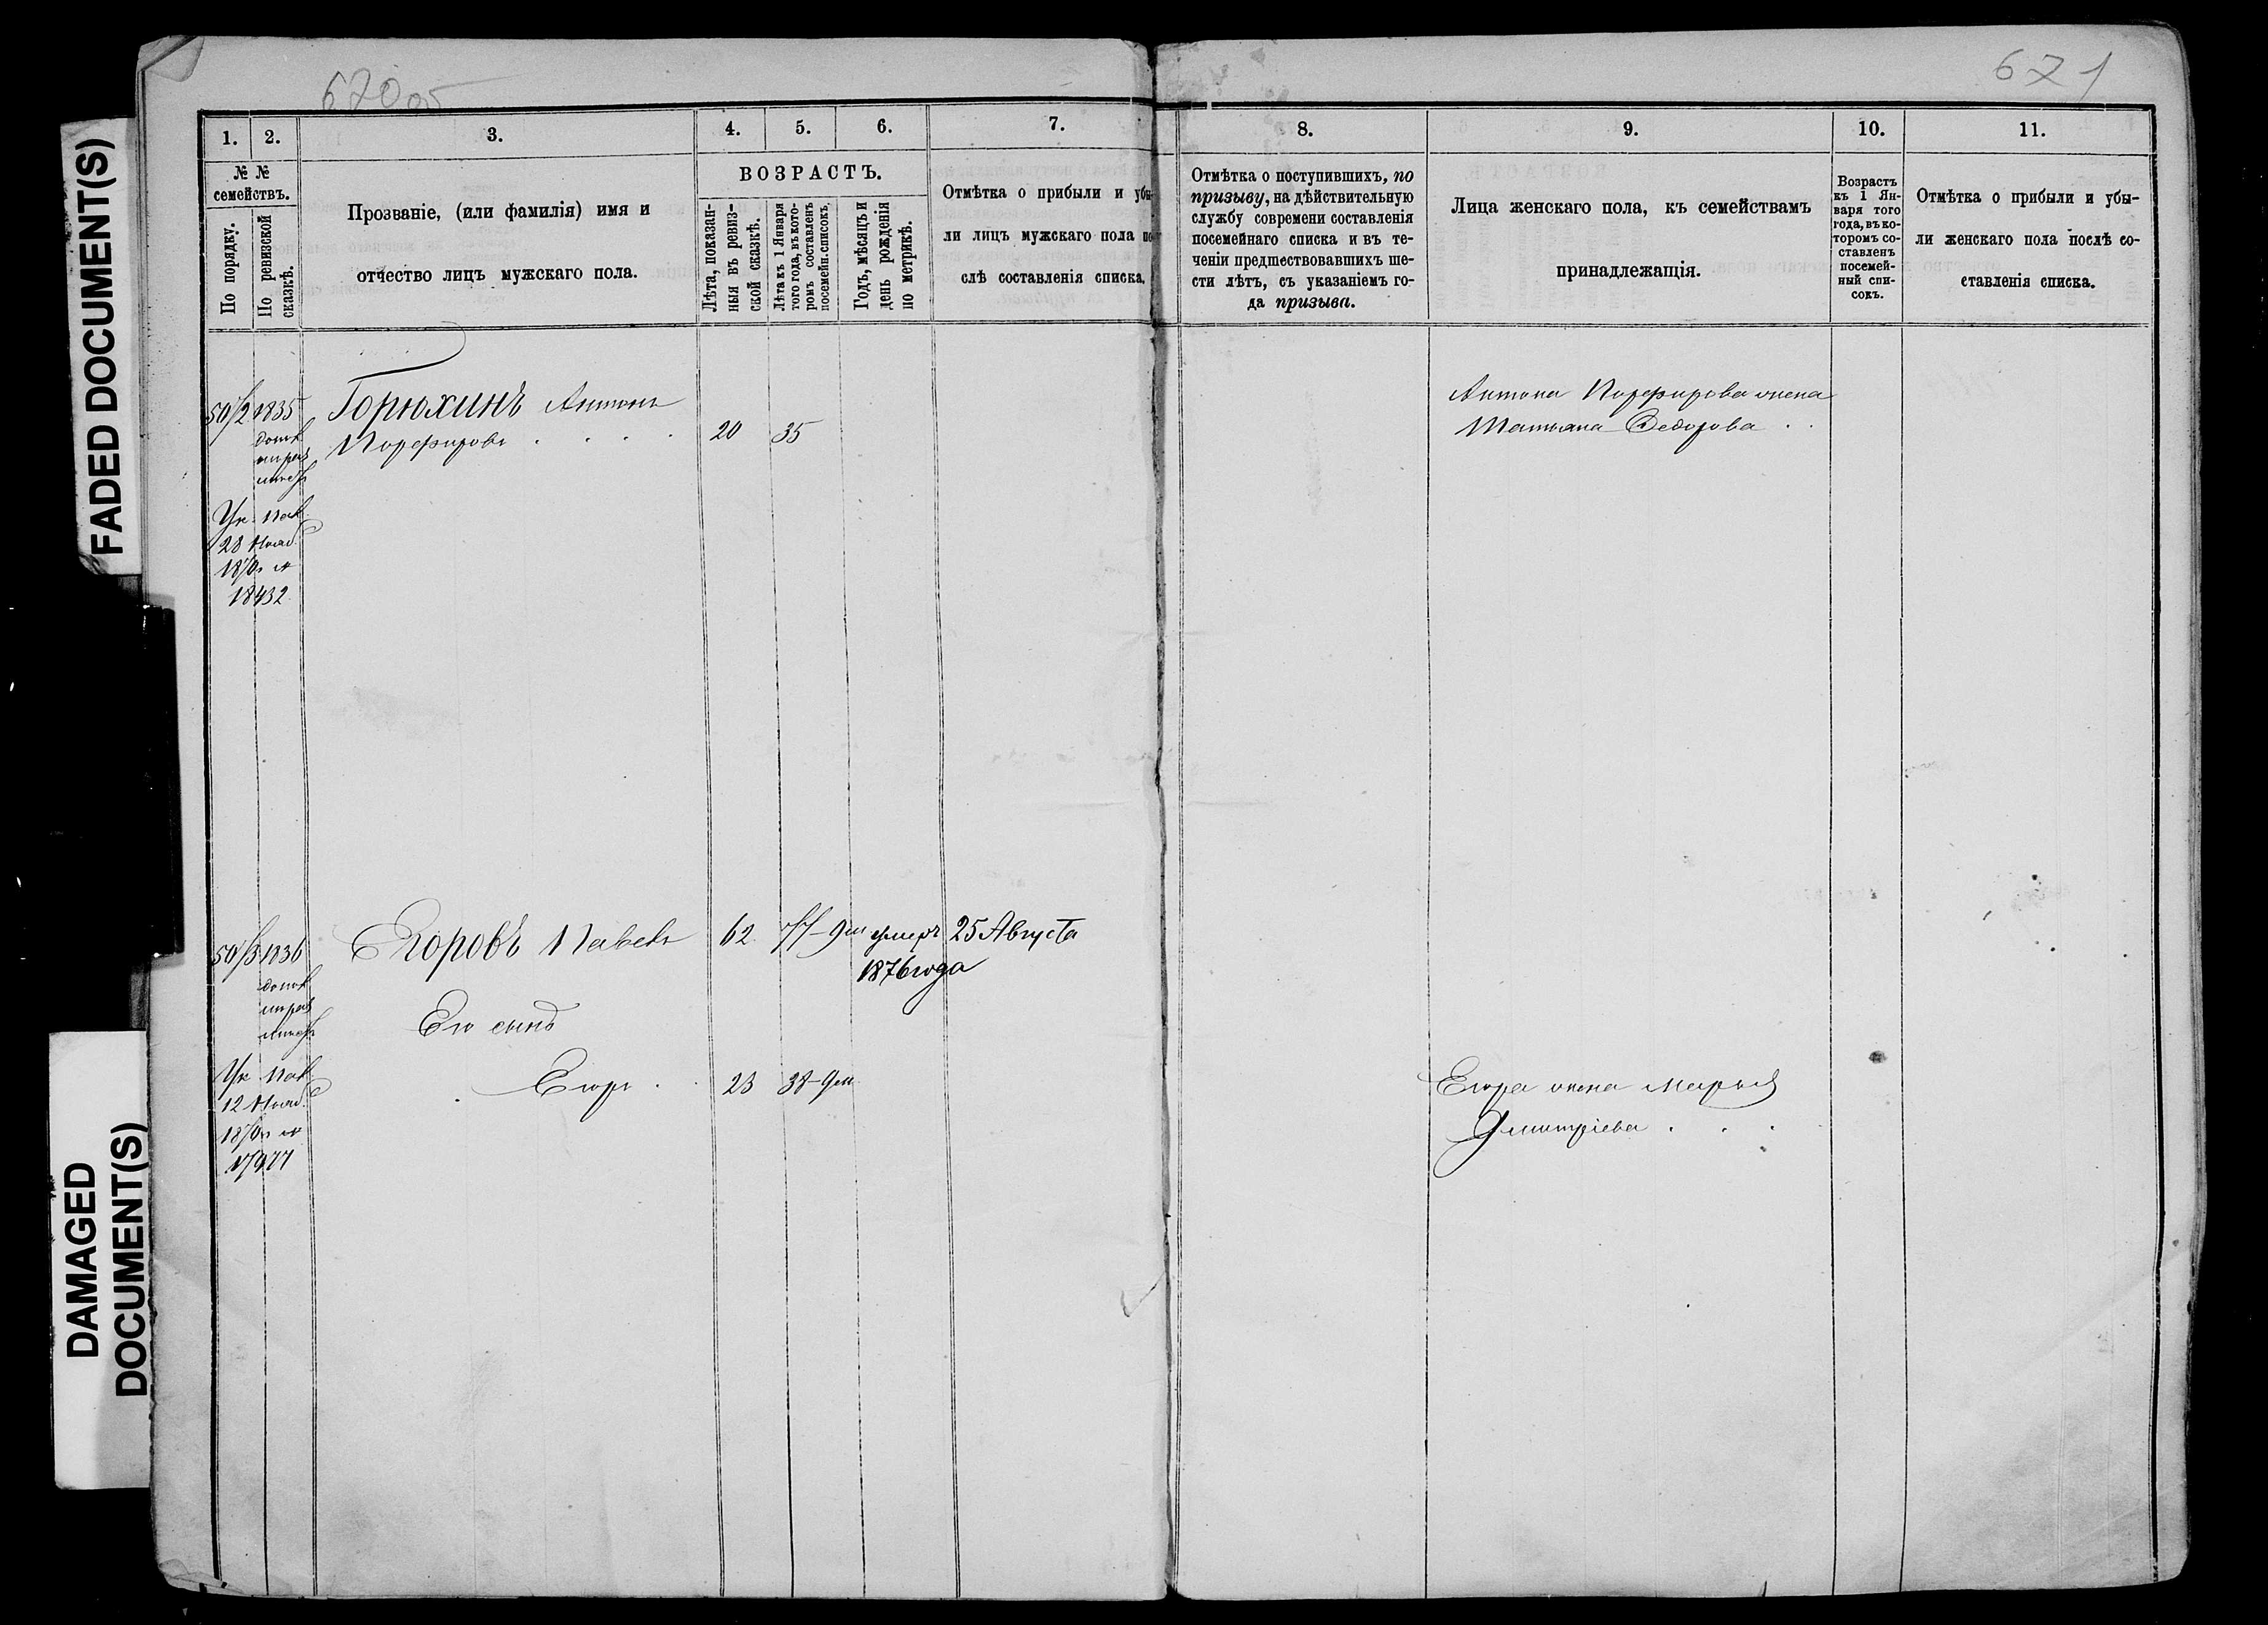 FADED DOCUMENT(S)
DAMAGED
DOCUMENT(S)
670об
671
1.
2.
3.
4.
5.
6.
7.
8.
9.
10.
11.
№ №
семействъ.
По порядку.
По ревизской
сказкѣ.
Прозваніе, (или фамилія) имя и
отчество лицъ мужскаго пола.
ВОЗРАСТЪ.
Лѣта, показан-
ныя въ ревиз-
ской сказкѣ.
Лѣта къ 1 Января
того года, въ кото-
ромъ составленъ
посемейн. списокъ.
Годъ, мѣсяцъ и
день рожденія
по метрикѣ.
Отмѣтка о прибыли и убы-
ли лицъ мужскаго пола по-
слѣ составленія списка.
Отмѣтка о поступившихъ, по
призыву, на дѣйствительную
службу современи составленія
посемейнаго списка и въ те-
ченіи предшествовавшихъ ше-
сти лѣтъ, съ указаніемъ го-
да призыва.
Лица женскаго пола, къ семействамъ
принадлежащія.
Возрастъ
къ 1 Ян-
варя того
года, въ ко-
торомъ со-
ставленъ
посемей-
ный спи-
сокъ.
Отмѣтка о прибыли и убы-
ли женскаго пола послѣ со-
ставленія списка.
50/2 1835 Горюхинъ Антонъ
Порфировъ 20 35
Антона Порфирова жена
Татьяна Федорова
Ук. Пал.
28 Нояб.
1870 г №
18432
50/3 1836 Егоровъ Павелъ 62 77-9м умеръ 25 Августа
1876 года
Его сынъ
Егоръ 23 38-9м
Егора жена Марья
Дмитріева
Ук. Пал.
12 Нояб.
1870 г №
17977